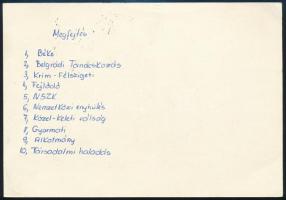 Megfejtés
1, Béke
2, Belgrádi Tanácskozás
3, Krim-Félszigeti
4, Fejlődő
5, NSZK
6, Nemzetközi enyhülés
7, Közel-Keleti válság
8, Gyarmati
9, Alkotmány
10, Társadalmi haladás